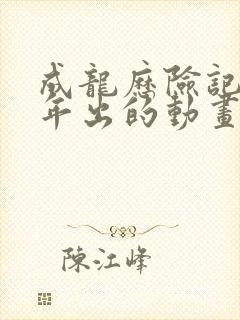 威龍歷險記
年出的動畫
陳江峰